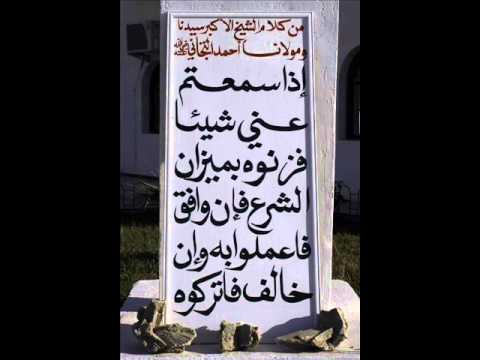 من كلام الشيخ الأكبر سيدنا
ومولانا أحمد التجاني رضي الله عنه
إذا سمعتم
عني شيئا
فزنوه بميزان
الشرع فإن وافق
فاعملوا به وإن
خالف فاتركوه